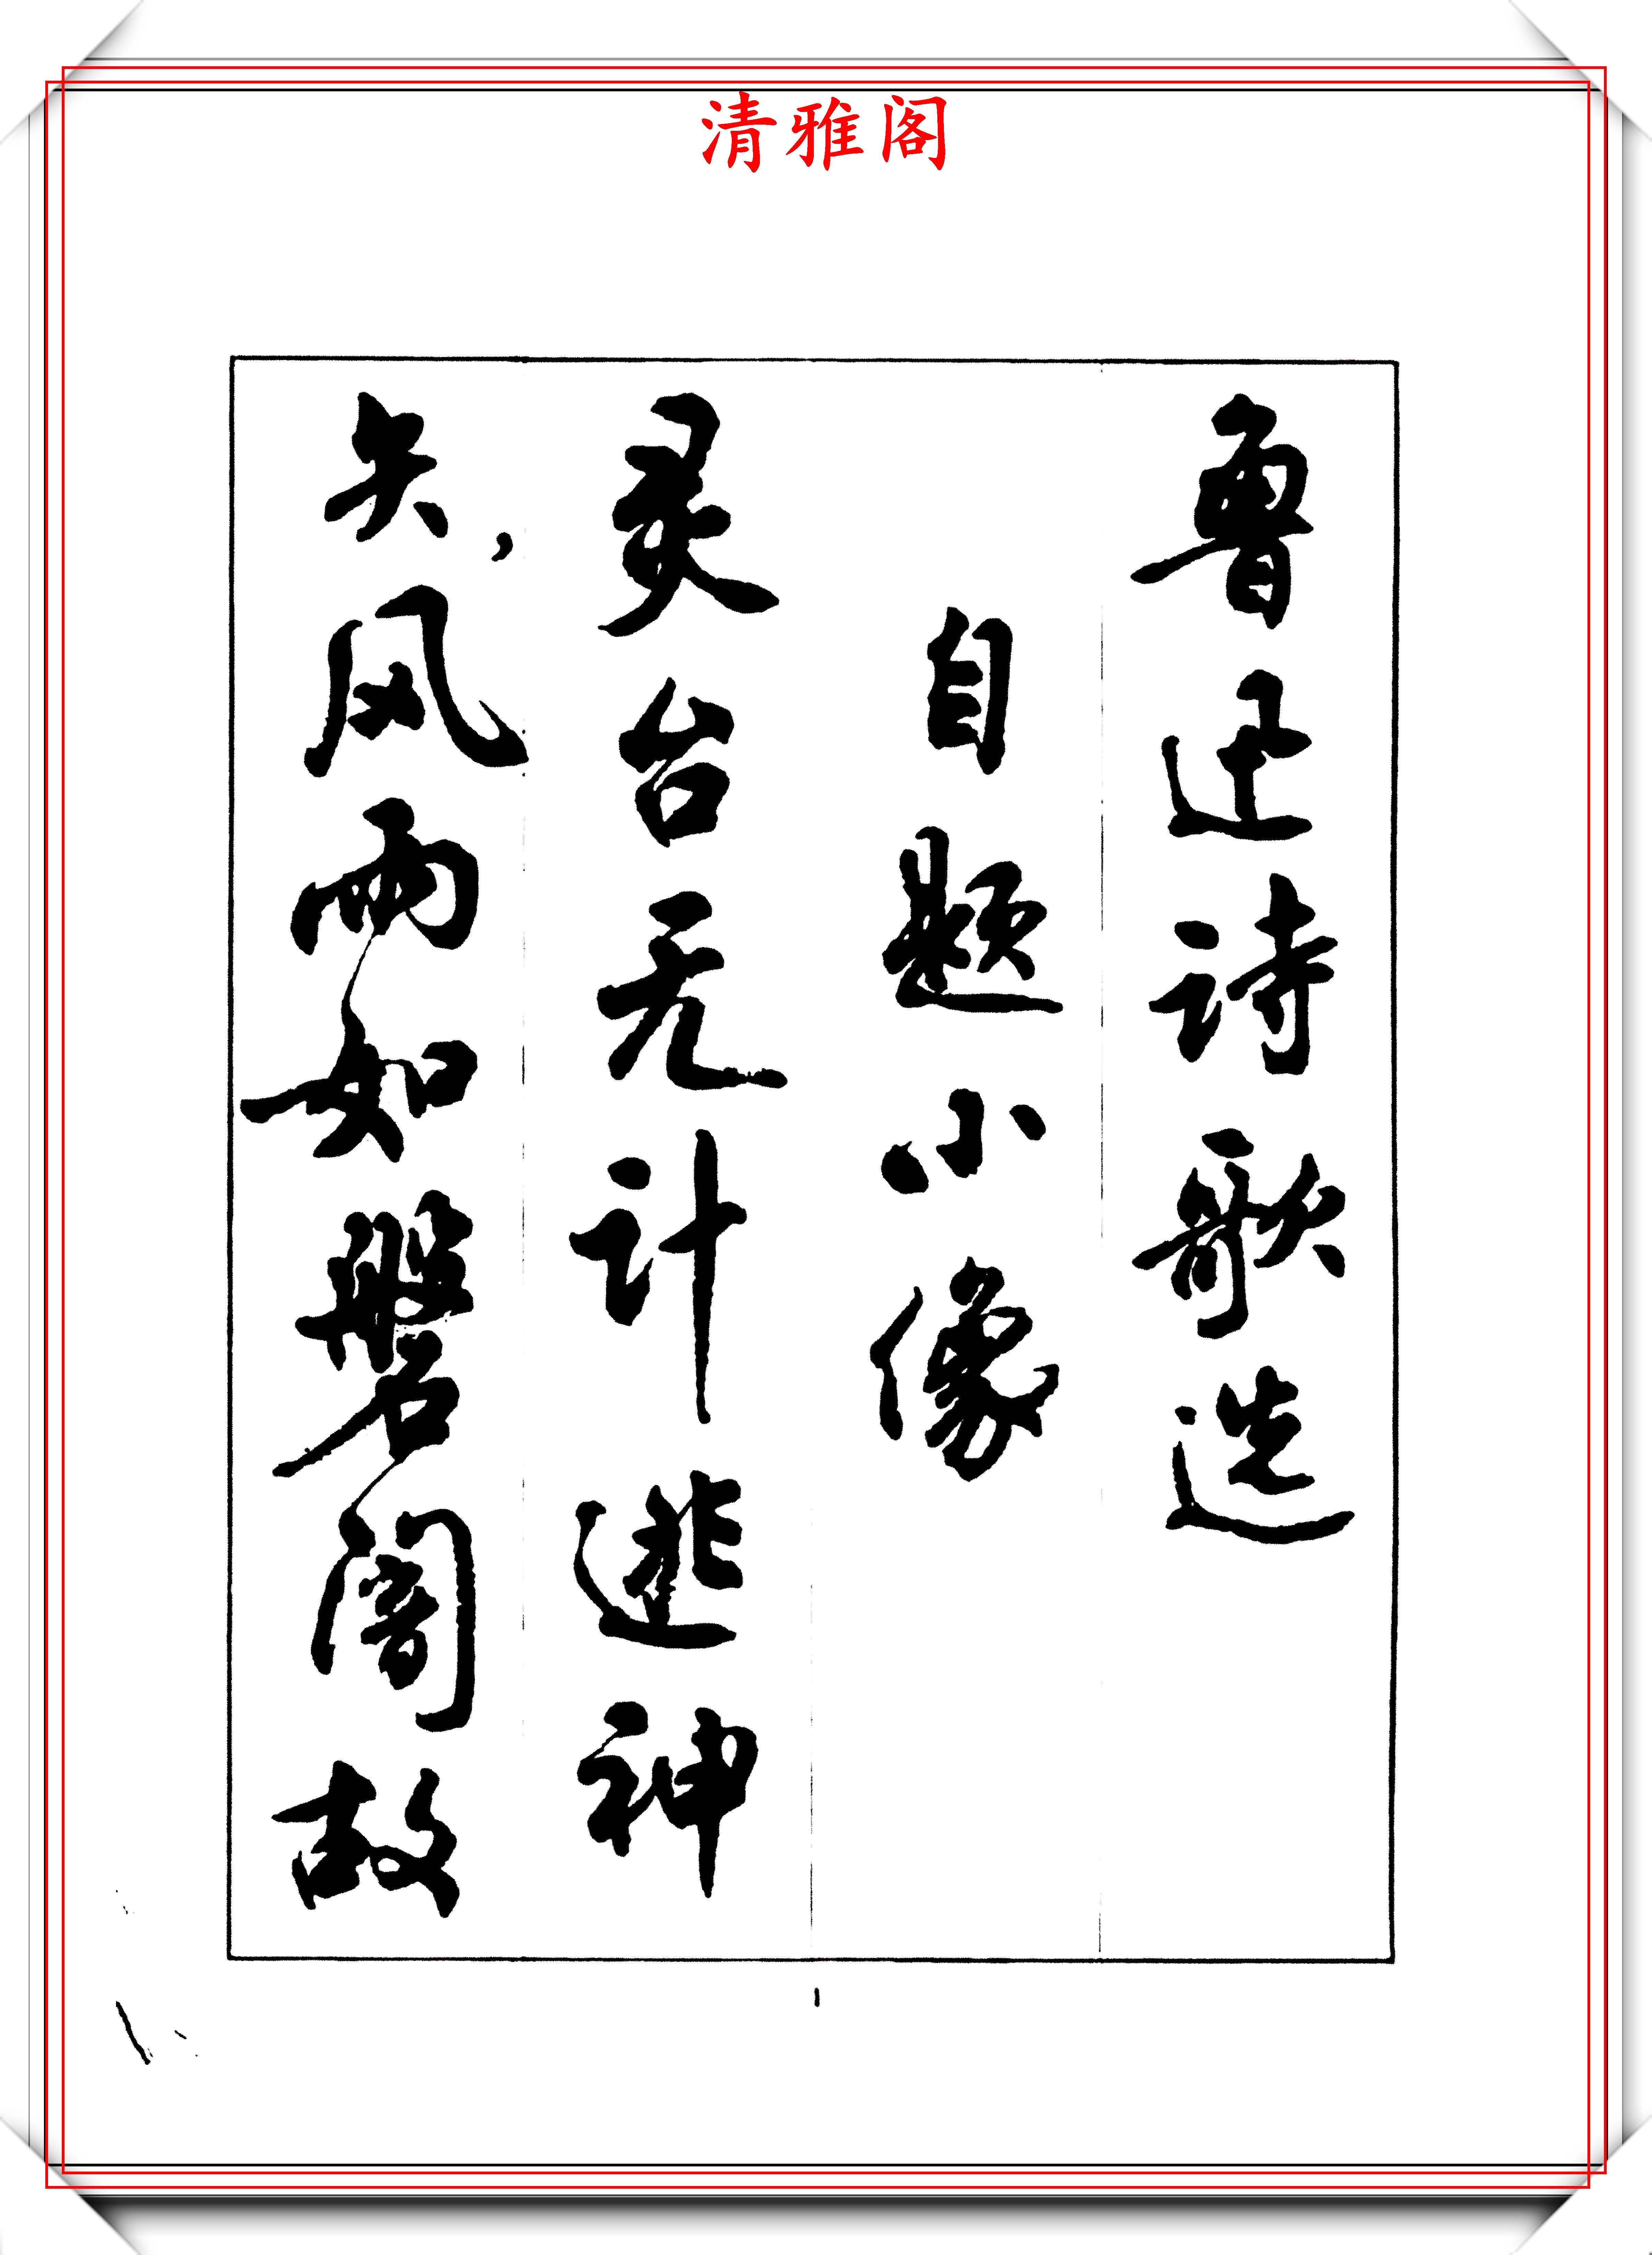 清雅阁
鲁迅诗歌选
自题小像
灵台无计逃神
矢，风雨如磐闇故
1